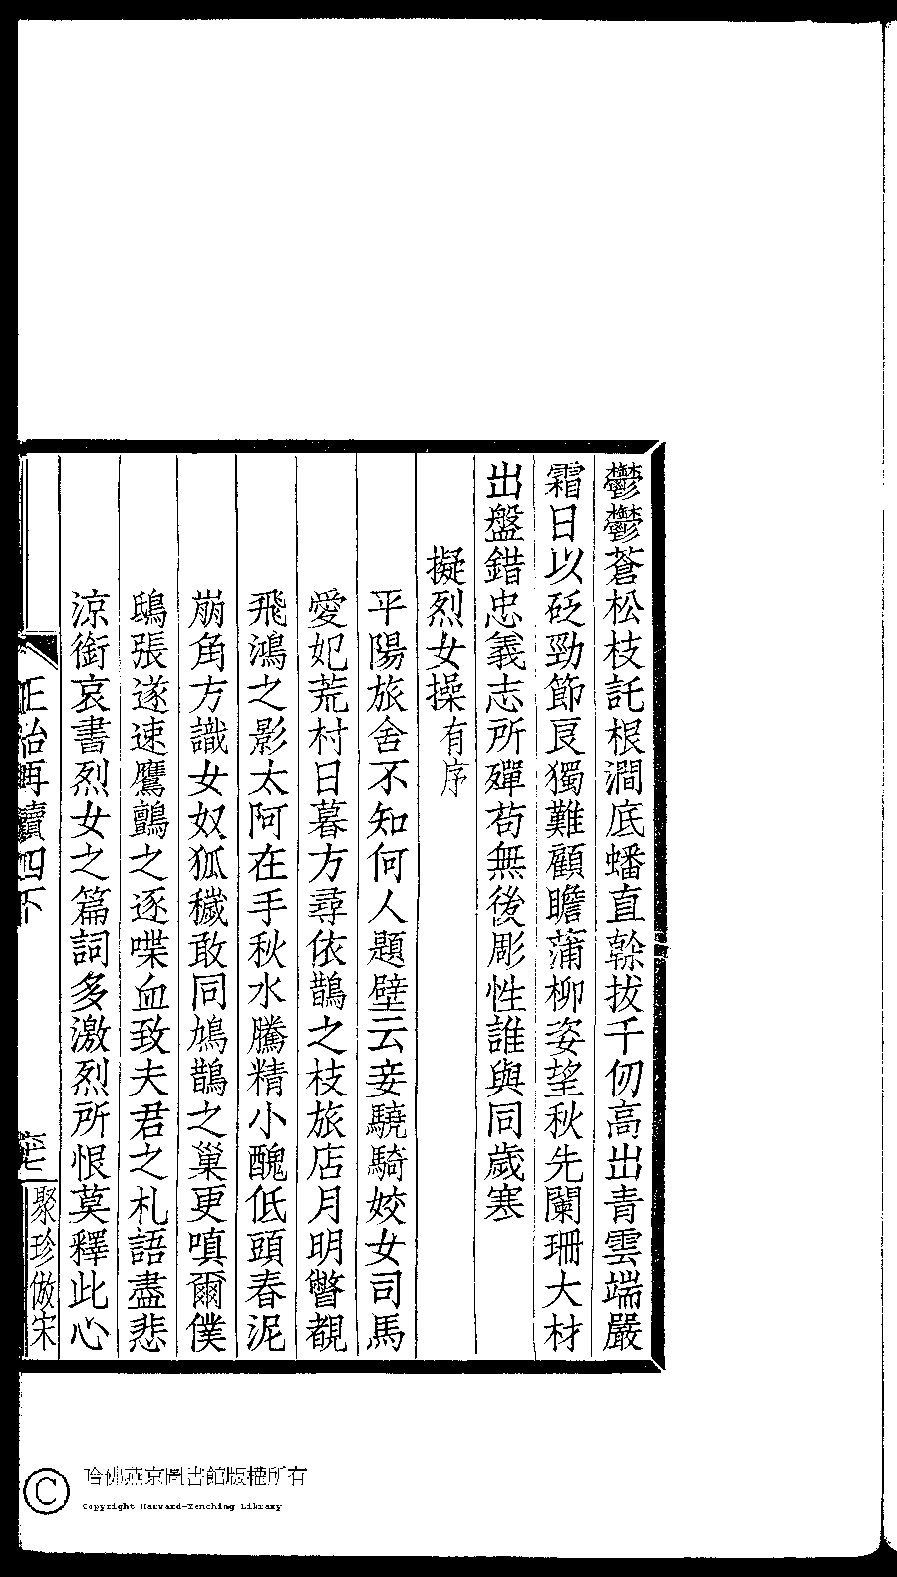 鬱鬱蒼松枝託根澗底蟠直榦拔千仞高出青雲端嚴
霜日以砭勁節良獨難顧瞻蒲柳姿望秋先闌珊大材
出盤錯忠義志所殫苟無後彫性誰與同歲寒
擬烈女操有序
平陽旅舍不知何人題壁云妾驍騎姣女司馬
愛妃荒村日暮方尋依鵲之枝旅店月明瞥覩
飛鴻之影太阿在手秋水騰精小醜低頭春泥
崩角方識女奴狐穢敢同鳩鵲之巢更嗔爾僕
鴟張遂速鷹鸇之逐喋血致夫君之札語盡悲
涼銜哀書烈女之篇詞多激烈所恨莫釋此心
正始再續四下
聚珍倣宋
哈佛燕京圖書館版權所有
Copyright Harvard-Yenching Library